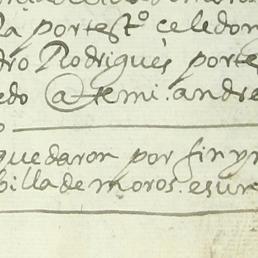 la por test.º çeledon
dro Rodrigues porte
edo @ temi. andre
quedaron por fin yn
billa de moros. esura